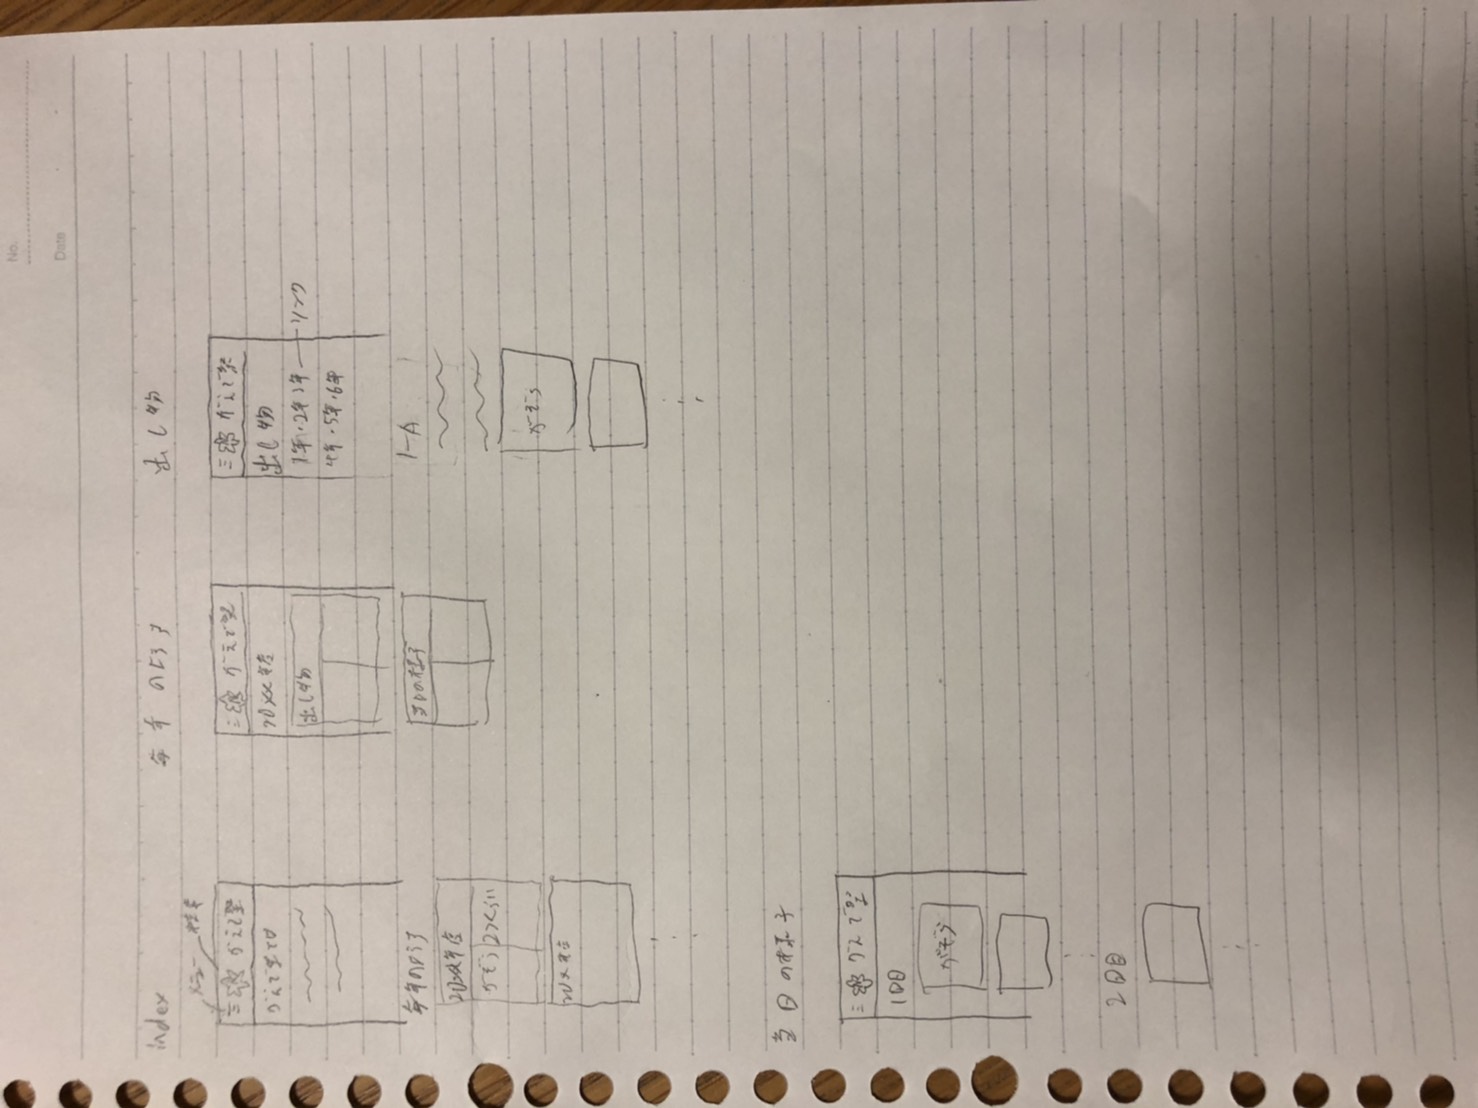 No.
Date
index
毎年のようす
出し物
メニュー 校章
三 かえで祭
かえで祭とは
毎年のようす
20xx年度
がぞう 2つくらい
20xx年度
三 かえで祭
20xx年度
出し物
当日の様子
三 かえで祭
出し物
1年・2年・3年 リンク
4年・5年・6年
1-A
がぞう
当日の様子
三 かえで祭
1日目
がぞう
2日目